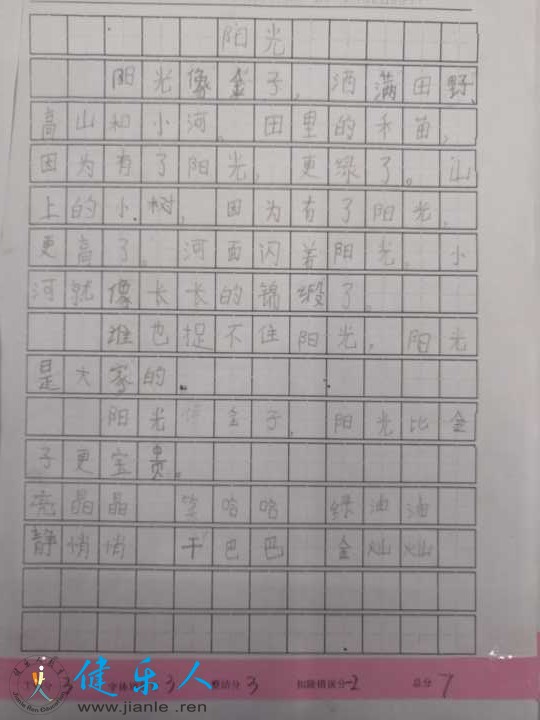 阳光
阳光像金子，洒满田野、
高山和小河。田里的禾苗，
因为有了阳光，更绿了。山
上的小树，因为有了阳光，
更高了。河面闪着阳光，小
河就像长长的锦缎了。
谁也捉不住阳光，阳光
是大家的。
阳光像金子，阳光比金
子更宝贵。
亮晶晶 笑哈哈 绿油油
静悄悄 干巴巴 金灿灿
3 3 整洁分 3 扣除错误分 -2 总分 7
健乐人
www.jianle.ren